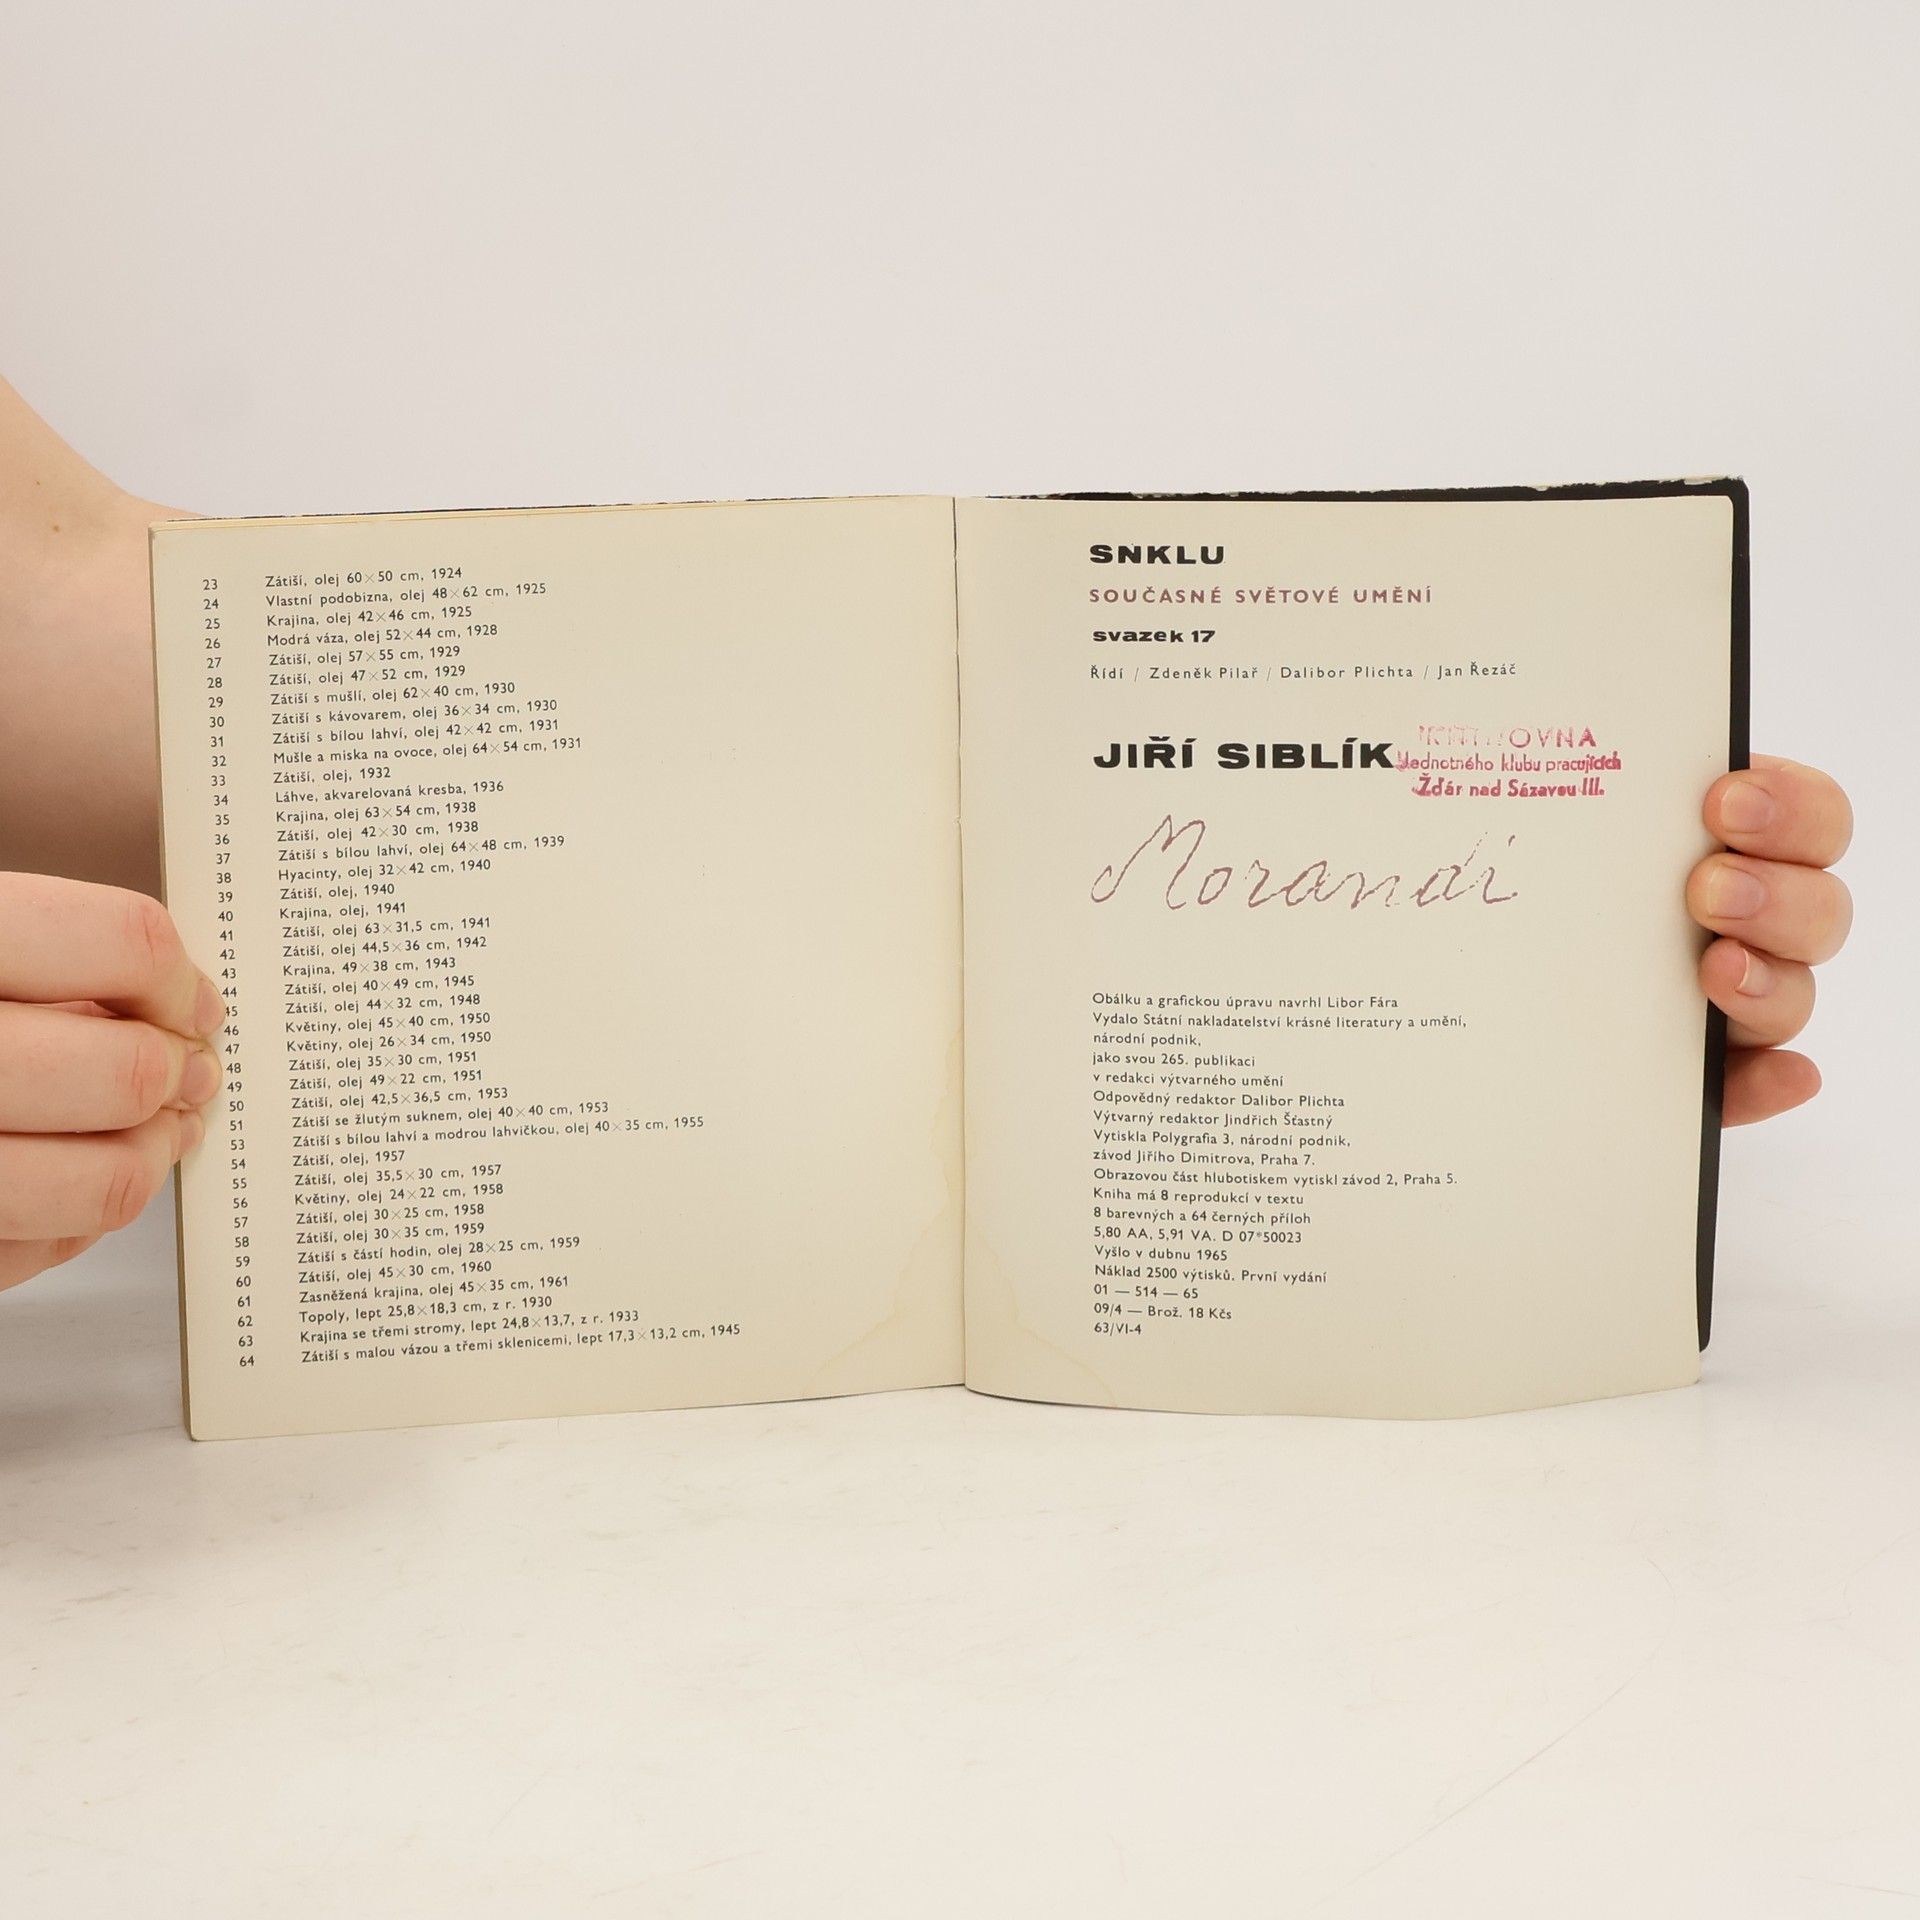 23 Zátiší, olej 60×50 cm, 1924
24 Vlastní podobizna, olej 48×62 cm, 1925
25 Krajina, olej 42×46 cm, 1925
26 Modrá váza, olej 52×44 cm, 1928
27 Zátiší, olej 57×55 cm, 1929
28 Zátiší, olej 47×52 cm, 1929
29 Zátiší s mušlí, olej 62×40 cm, 1930
30 Zátiší s kávovarem, olej 36×34 cm, 1930
31 Zátiší s bílou lahví, olej 42×42 cm, 1931
32 Mušle a miska na ovoce, olej 64×54 cm, 1931
33 Zátiší, olej, 1932
34 Láhve, akvarelovaná kresba, 1936
35 Krajina, olej 63×54 cm, 1938
36 Zátiší, olej 42×30 cm, 1938
37 Zátiší s bílou lahví, olej 64×48 cm, 1939
38 Hyacinty, olej 32×42 cm, 1940
39 Zátiší, olej, 1940
40 Krajina, olej, 1941
41 Zátiší, olej 63×31,5 cm, 1941
42 Zátiší, olej 44,5×36 cm, 1942
43 Krajina, 49×38 cm, 1943
44 Zátiší, olej 40×49 cm, 1945
45 Zátiší, olej 44×32 cm, 1948
46 Květiny, olej 45×40 cm, 1950
47 Květiny, olej 26×34 cm, 1950
48 Zátiší, olej 35×30 cm, 1951
49 Zátiší, olej 49×22 cm, 1951
50 Zátiší, olej 42,5×36,5 cm, 1953
51 Zátiší se žlutým suknem, olej 40×40 cm, 1953
53 Zátiší s bílou lahví a modrou lahvičkou, olej 40×35 cm, 1955
54 Zátiší, olej, 1957
55 Zátiší, olej 35,5×30 cm, 1957
56 Květiny, olej 24×22 cm, 1958
57 Zátiší, olej 30×25 cm, 1958
58 Zátiší, olej 30×35 cm, 1959
59 Zátiší s částí hodin, olej 28×25 cm, 1959
60 Zátiší, olej 45×30 cm, 1960
61 Zasněžená krajina, olej 45×35 cm, 1961
62 Topoly, lept 25,8×18,3 cm, z r. 1930
63 Krajina se třemi stromy, lept 24,8×13,7, z r. 1933
64 Zátiší s malou vázou a třemi sklenicemi, lept 17,3×13,2 cm, 1945
SNKLU
SOUČASNÉ SVĚTOVÉ UMĚNÍ
svazek 17
Řídí / Zdeněk Pilař / Dalibor Plichta / Jan Řezáč
JIŘÍ SIBLÍK
Jednotného klubu pracujících
Žďár nad Sázavou III.
Morandi
Obálku a grafickou úpravu navrhl Libor Fára
Vydalo Státní nakladatelství krásné literatury a umění,
národní podnik,
jako svou 265. publikaci
v redakci výtvarného umění
Odpovědný redaktor Dalibor Plichta
Výtvarný redaktor Jindřich Šťastný
Vytiskla Polygrafia 3, národní podnik,
závod Jiřího Dimitrova, Praha 7.
Obrazovou část hlubotiskem vytiskl závod 2, Praha 5.
Kniha má 8 reprodukcí v textu
8 barevných a 64 černých příloh
5,80 AA, 5,91 VA. D 07*50023
Vyšlo v dubnu 1965
Náklad 2500 výtisků. První vydání
01 — 514 — 65
09/4 — Brož. 18 Kčs
63/VI-4